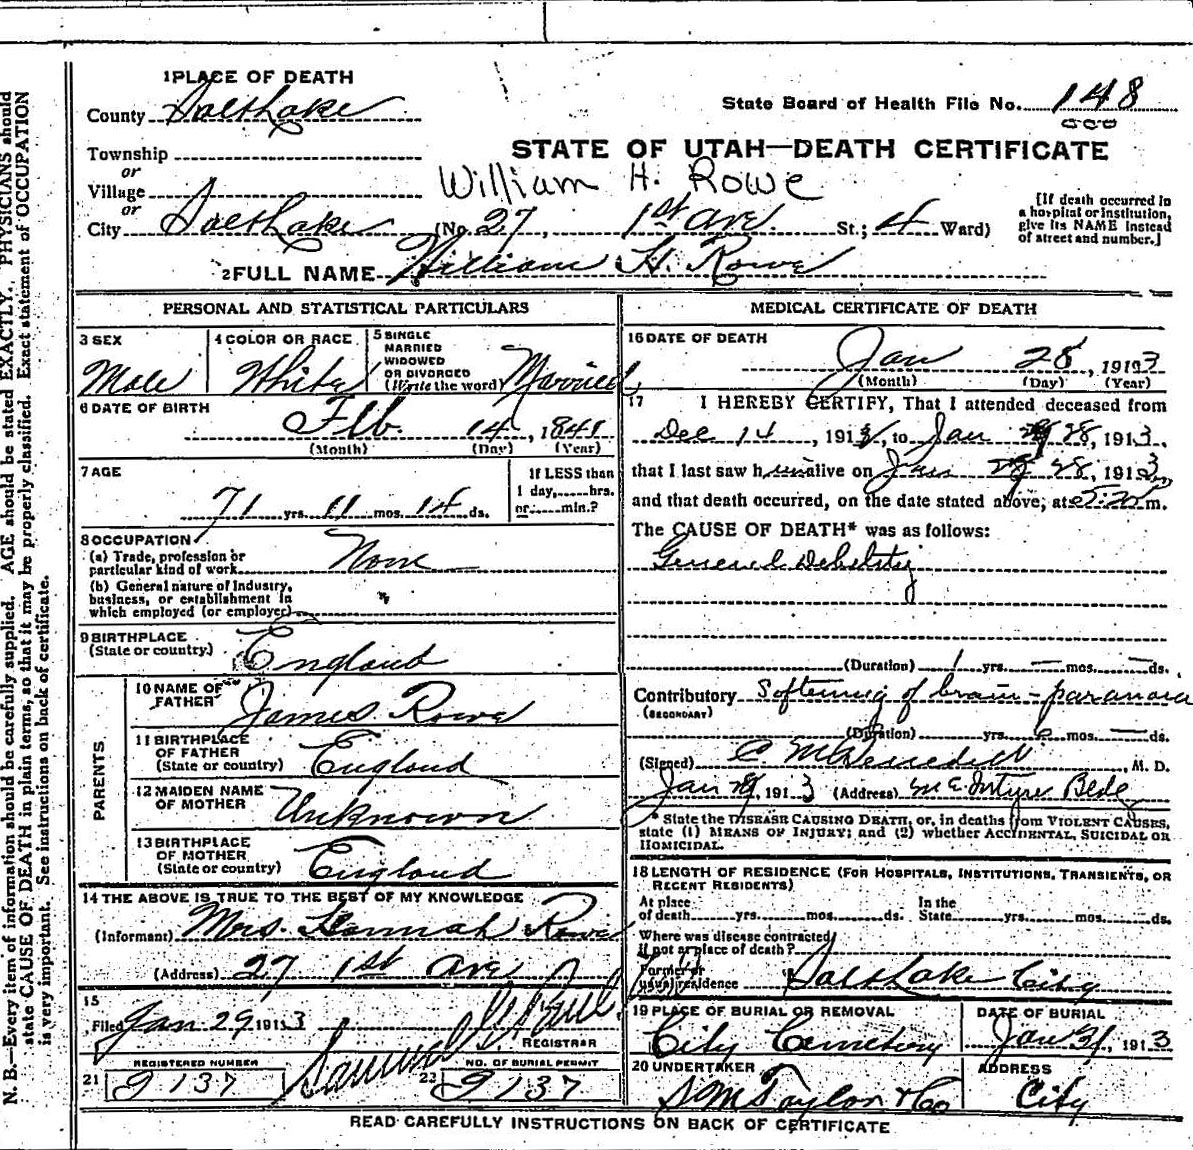 1 PLACE OF DEATH
County Salt Lake
State Board of Health File No. 148
Township
or
Village
or
City Salt Lake (No. 27, 1st ave. St.; 4 Ward)
STATE OF UTAH—DEATH CERTIFICATE
William H. Rowe
[If death occurred in a hospital or institution, give its NAME instead of street and number.]
2 FULL NAME William H. Rowe
PERSONAL AND STATISTICAL PARTICULARS
3 SEX
Male
4 COLOR OR RACE
White
5 SINGLE
MARRIED
WIDOWED
OR DIVORCED
(Write the word) Married
6 DATE OF BIRTH
Feb. 14, 1841
(Month) (Day) (Year)
7 AGE
71 yrs. 11 mos. 14 ds.
If LESS than
1 day,......hrs.
or......min.?
8 OCCUPATION
(a) Trade, profession or
particular kind of work None
(b) General nature of Industry,
business, or establishment in
which employed (or employer)
9 BIRTHPLACE
(State or country) England
PARENTS
10 NAME OF
FATHER James Rowe
11 BIRTHPLACE
OF FATHER
(State or country) England
12 MAIDEN NAME
OF MOTHER Unknown
13 BIRTHPLACE
OF MOTHER
(State or country) England
14 THE ABOVE IS TRUE TO THE BEST OF MY KNOWLEDGE
(Informant) Mrs. Hannah Rowe
(Address) 27 1st ave
15
Filed Jan 29 1913
REGISTRAR
REGISTERED NUMBER
21 G 137
NO. OF BURIAL PERMIT
22 G 137
MEDICAL CERTIFICATE OF DEATH
16 DATE OF DEATH
Jan 28, 1913
(Month) (Day) (Year)
17 I HEREBY CERTIFY, That I attended deceased from
Dec 14, 191, to Jan 28, 1913,
that I last saw him alive on Jan 28, 1913
and that death occurred, on the date stated above, at 5:20 P m.
The CAUSE OF DEATH* was as follows:
General Debility
(Duration) 1 yrs. — mos. — ds.
Contributory Softening of brain - paranoia
(SECONDARY)
(Duration) yrs. 6 mos. — ds.
(Signed) C. M. Benedict, M. D.
Jan 29, 1913 (Address) McIntyre Bldg
* State the DISEASE CAUSING DEATH, or, in deaths from VIOLENT CAUSES,
state (1) MEANS OF INJURY; and (2) whether ACCIDENTAL, SUICIDAL OR
HOMICIDAL.
18 LENGTH OF RESIDENCE (FOR HOSPITALS, INSTITUTIONS, TRANSIENTS, OR
RECENT RESIDENTS)
At place of death......yrs......mos......ds. In the State......yrs......mos......ds.
Where was disease contracted
if not at place of death?
Former or
usual residence Salt Lake City
19 PLACE OF BURIAL OR REMOVAL
City Cemetery
DATE OF BURIAL
Jan 31, 1913
20 UNDERTAKER
S M Taylor & Co
ADDRESS
City
READ CAREFULLY INSTRUCTIONS ON BACK OF CERTIFICATE
N. B.—Every item of information should be carefully supplied. AGE should be stated EXACTLY. PHYSICIANS should
state CAUSE OF DEATH in plain terms, so that it may be properly classified. Exact statement of OCCUPATION
is very important. See instructions on back of certificate.